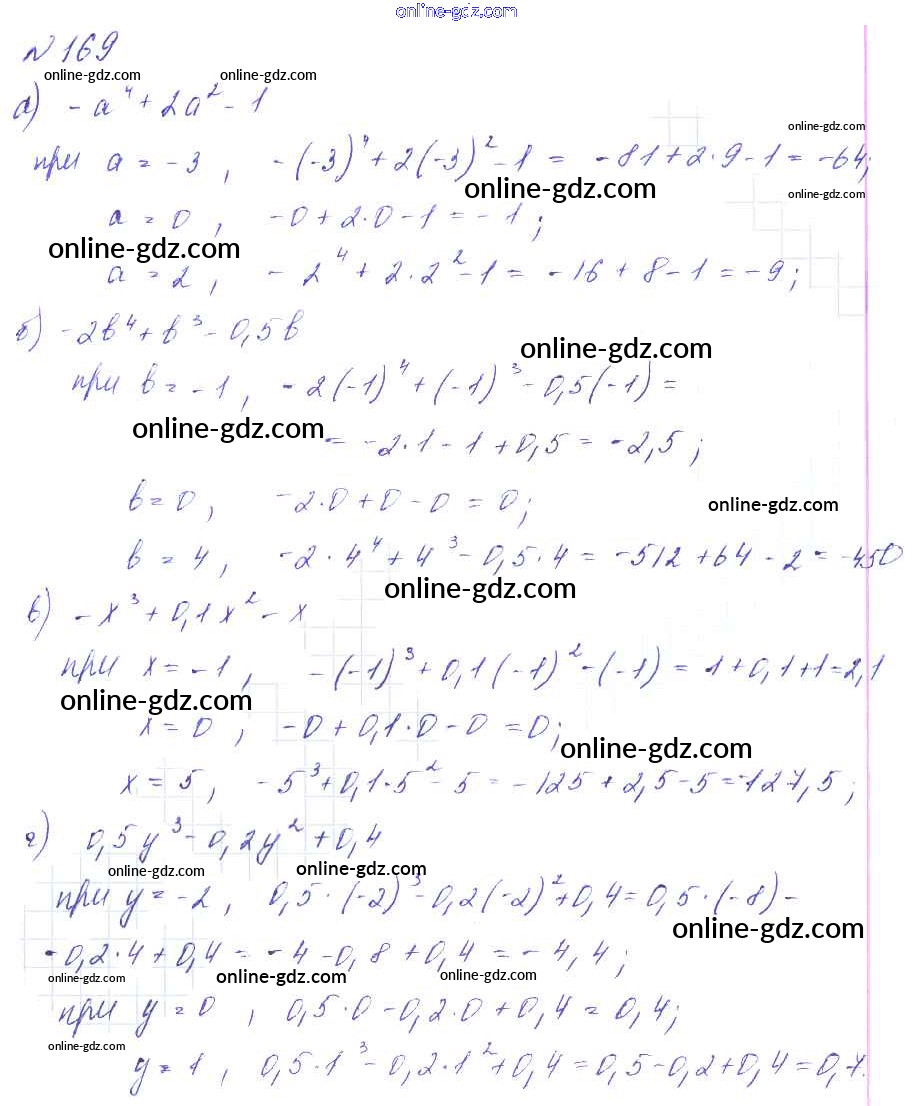 online-gdz.com
№ 169
online-gdz.com online-gdz.com
а) - a⁴ + 2a² - 1
online-gdz.com
при a = -3, -(-3)⁴ + 2(-3)² - 1 = -81 + 2·9 - 1 = -64;
online-gdz.com online-gdz.com
a = 0, -0 + 2·0 - 1 = -1;
online-gdz.com
a = 2, -2⁴ + 2·2² - 1 = -16 + 8 - 1 = -9;
б) -2b⁴ + b³ - 0,5b
online-gdz.com
при b = -1, -2(-1)⁴ + (-1)³ - 0,5(-1) =
online-gdz.com
= -2·1 - 1 + 0,5 = -2,5;
b = 0, -2·0 + 0 - 0 = 0;
online-gdz.com
b = 4, -2·4⁴ + 4³ - 0,5·4 = -512 + 64 - 2 = -450
online-gdz.com
в) -x³ + 0,1x² - x
при x = -1, -(-1)³ + 0,1(-1)² - (-1) = 1 + 0,1 + 1 = 2,1
online-gdz.com
x = 0, -0 + 0,1·0 - 0 = 0;
online-gdz.com
x = 5, -5³ + 0,1·5² - 5 = -125 + 2,5 - 5 = -127,5;
г) 0,5y³ - 0,2y² + 0,4
online-gdz.com online-gdz.com
при y = -2, 0,5·(-2)³ - 0,2(-2)² + 0,4 = 0,5·(-8) -
online-gdz.com
- 0,2·4 + 0,4 = -4 - 0,8 + 0,4 = -4,4;
online-gdz.com online-gdz.com online-gdz.com
при y = 0, 0,5·0 - 0,2·0 + 0,4 = 0,4;
online-gdz.com
y = 1, 0,5·1³ - 0,2·1² + 0,4 = 0,5 - 0,2 + 0,4 = 0,7.